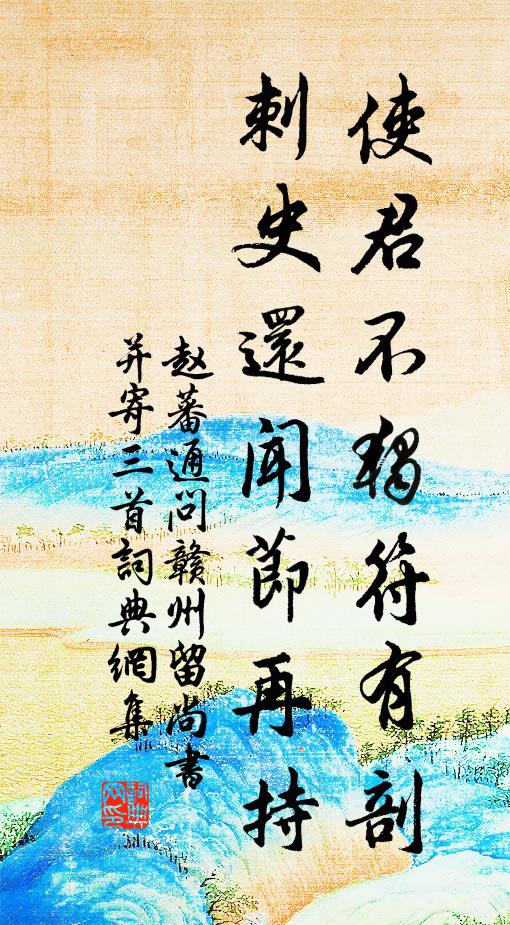 使君不獨符有剖
刺史還闻莭再持
赵蕃通问赣州留尚書
并寄三首詞典網集